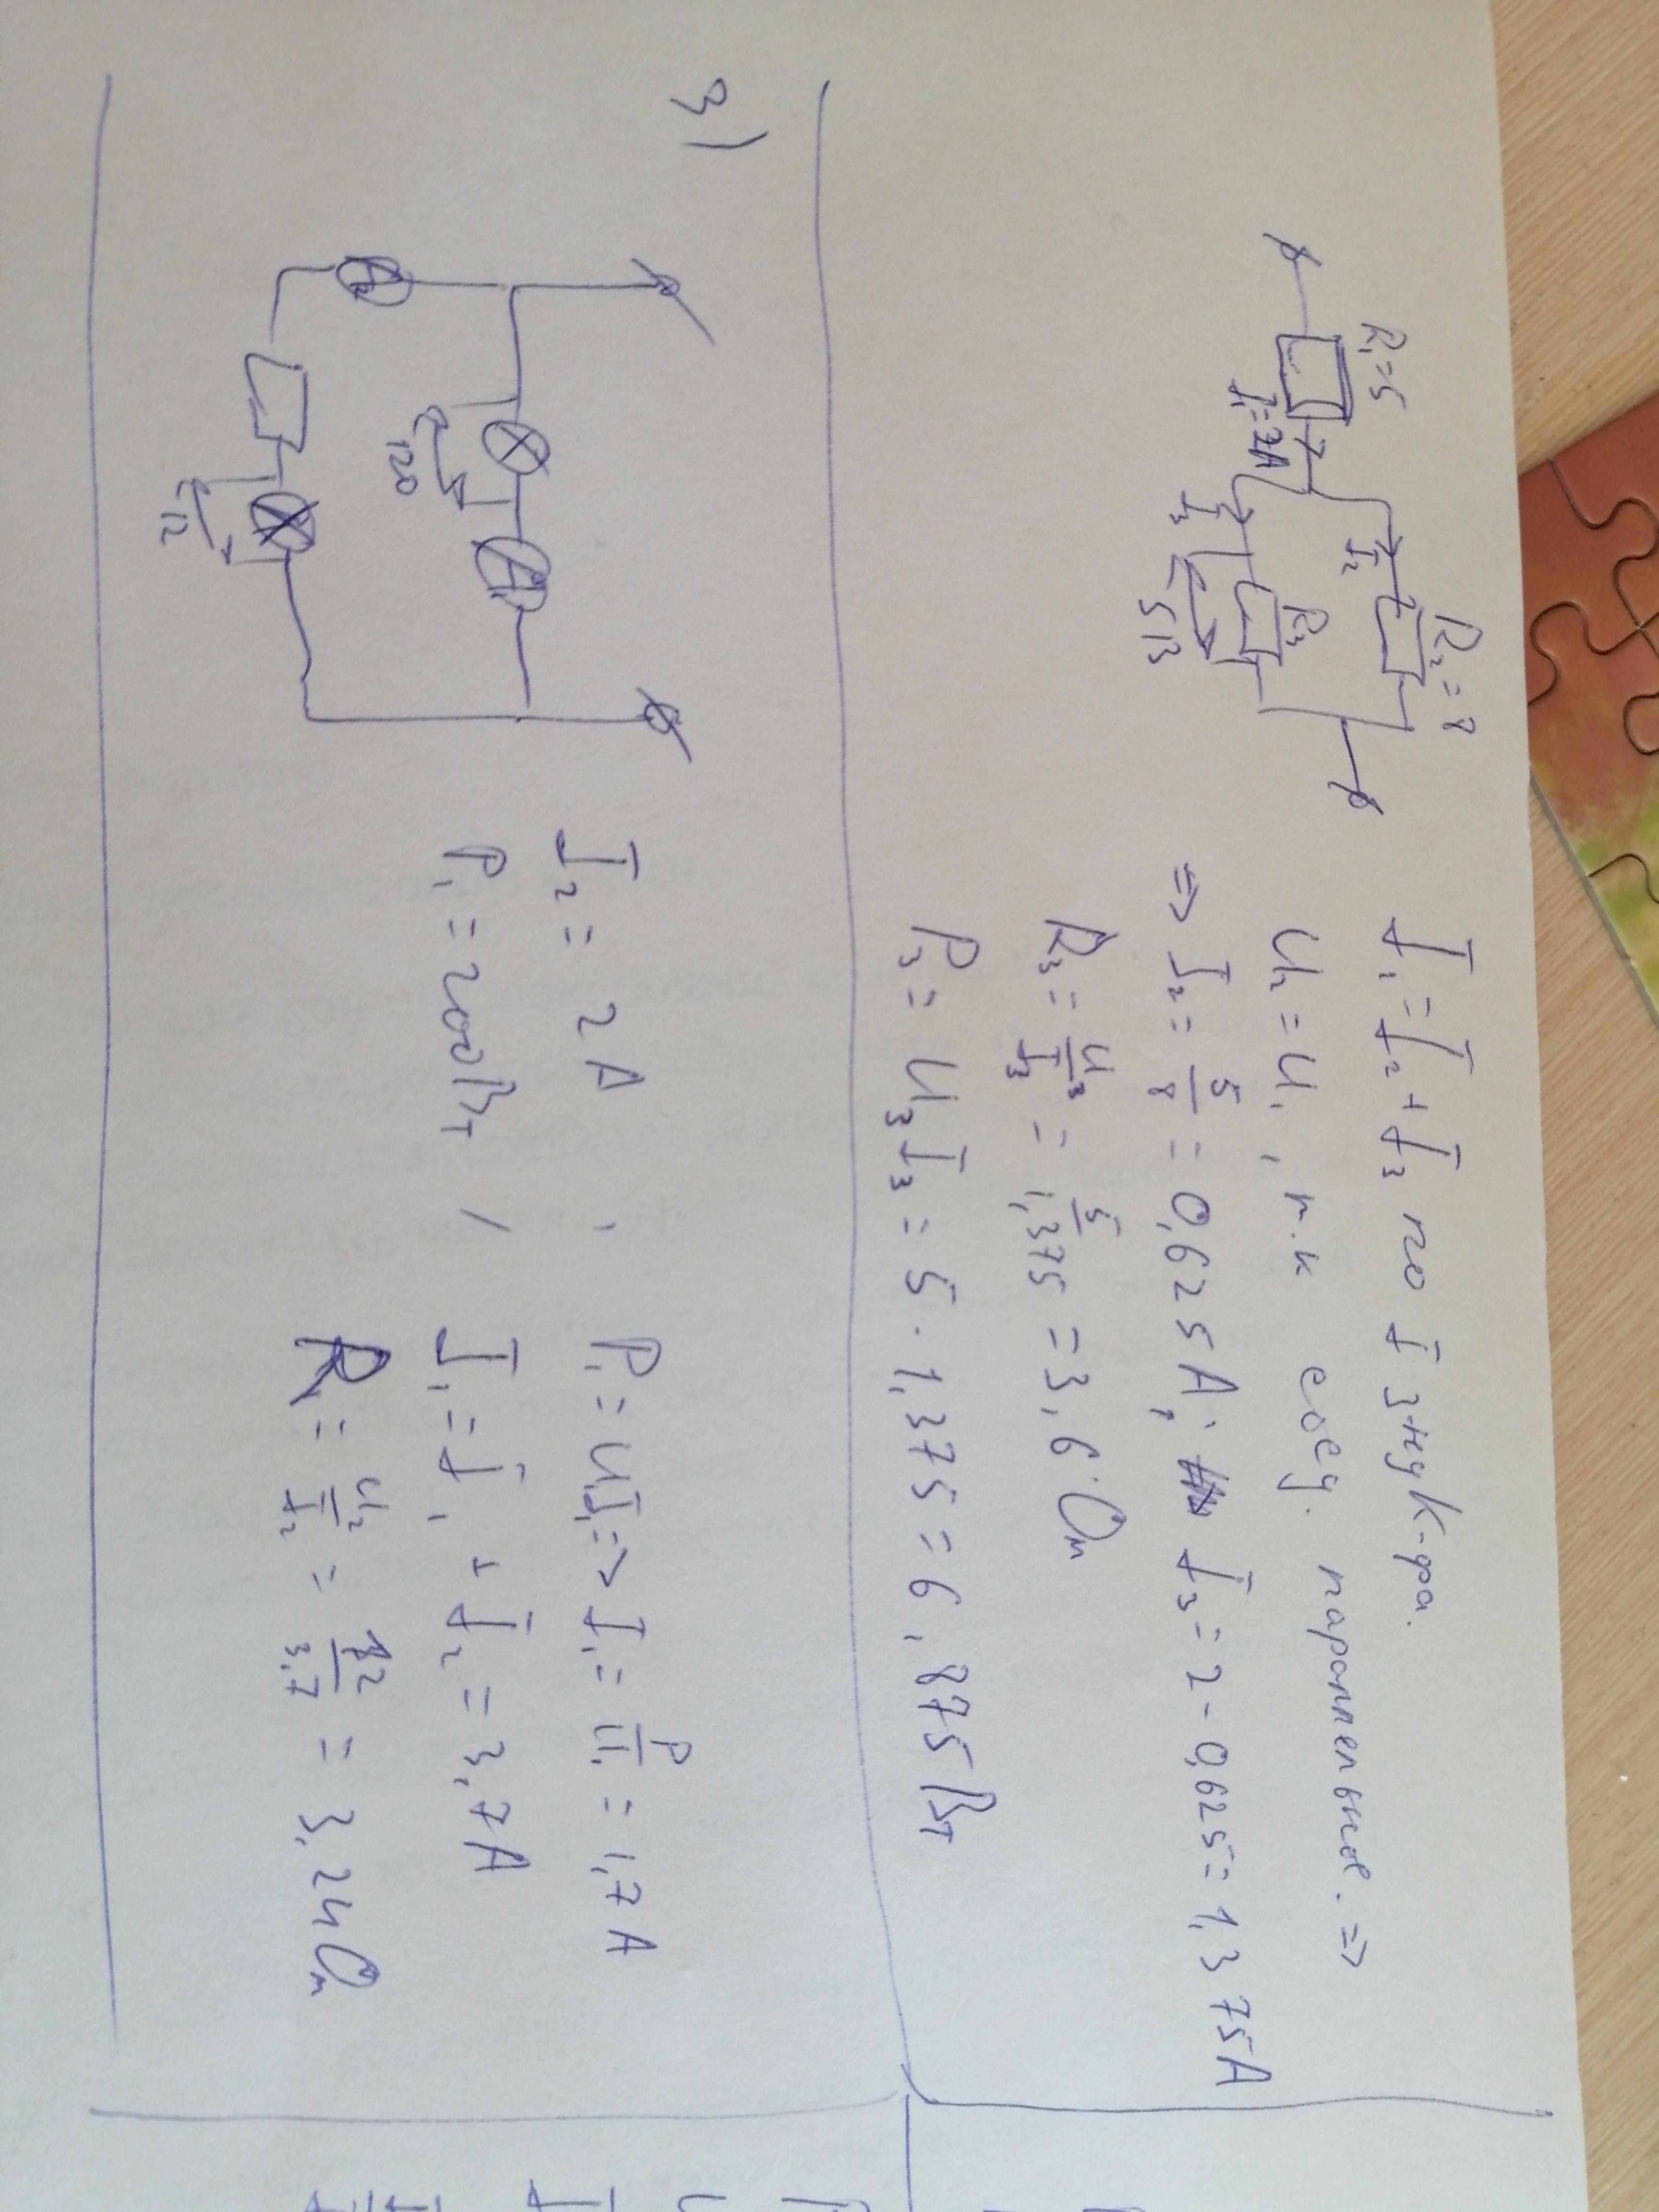 R₁=5
R₂=8
I₁=2A
I₂
R₃
I₃
5 В
I₁=I₂+I₃ по I з-ну К-фа.
U₂=U₁, т.к соед. параллельное. =>
=> I₂=5/8=0,625A; I₃=2-0,625=1,375A
R₃=U₃/I₃=5/1,375=3,6 Ом
P₃=U₃I₃=5·1,375=6,875Вт
3)
120
12
I₂=2A
P₁=200Вт
P₁=UI₁=>I₁=P/U₁=1,7A
I₁=I₁+I₂=3,7A
R₁=U₂/I₂=12/3,7=3,24Ом